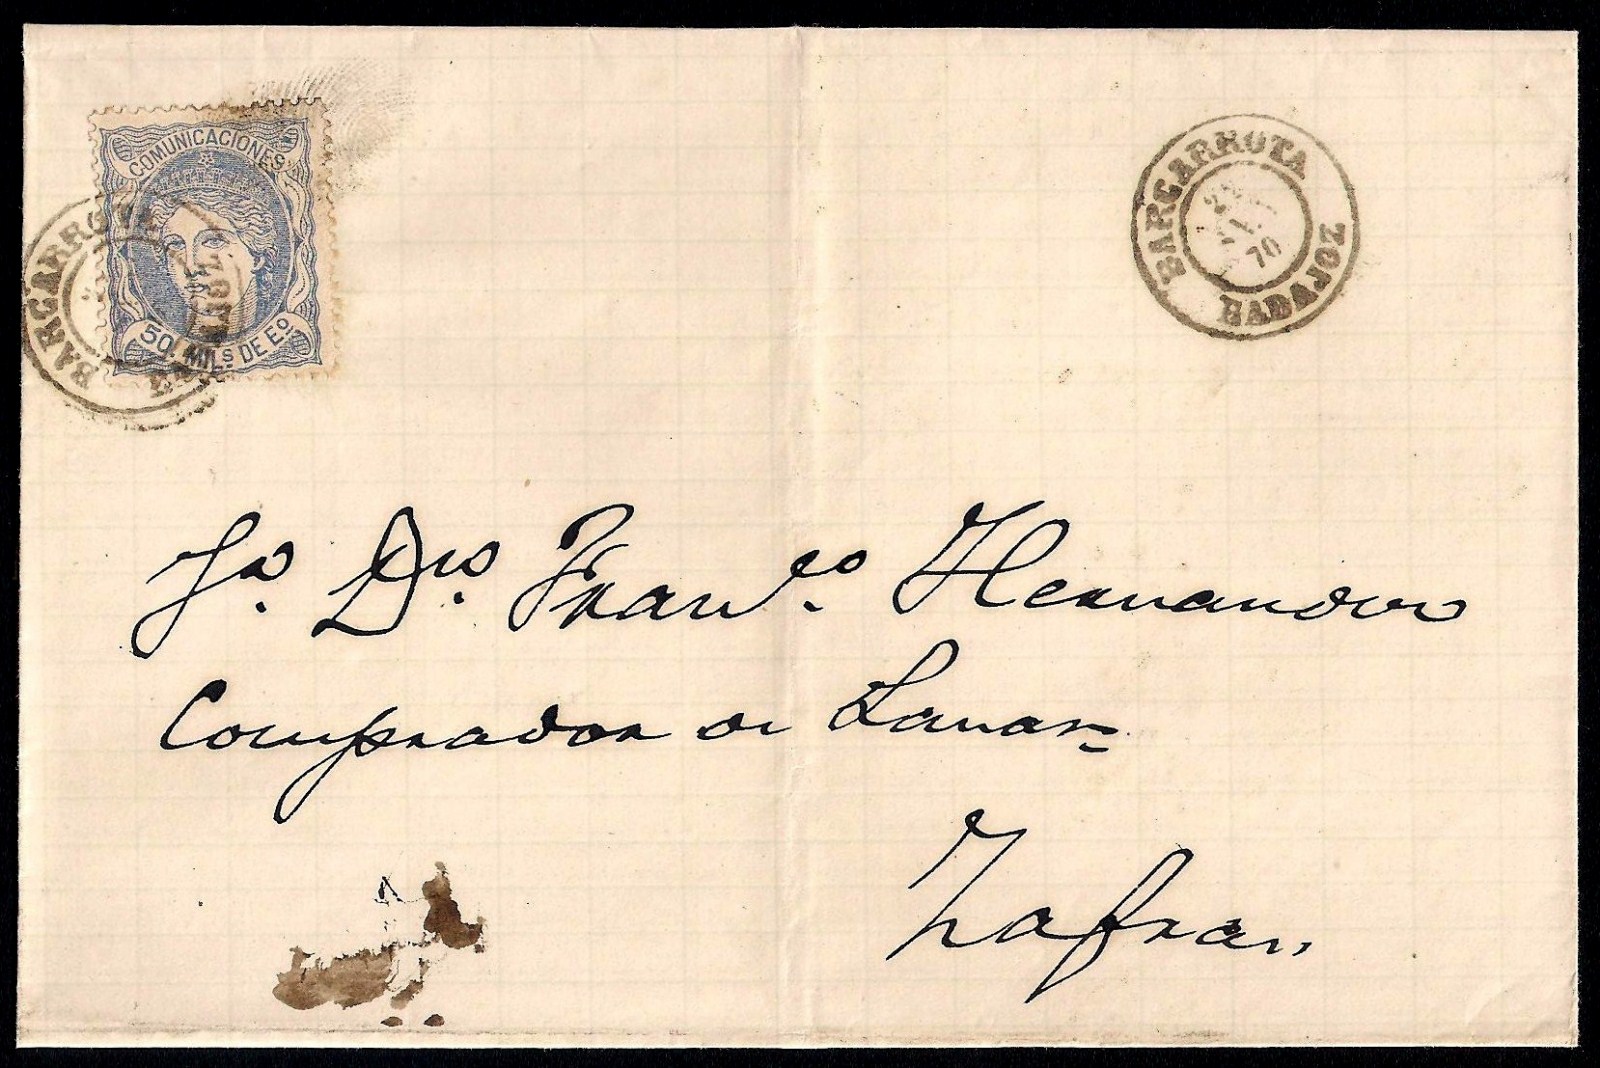 COMUNICACIONES
50. MILS. DE Eº
BARCARROTA
BARCARROTA
70
BADAJOZ
Sr. Dn. Franco. Hernandez
Comprador de Lanas
Zafra